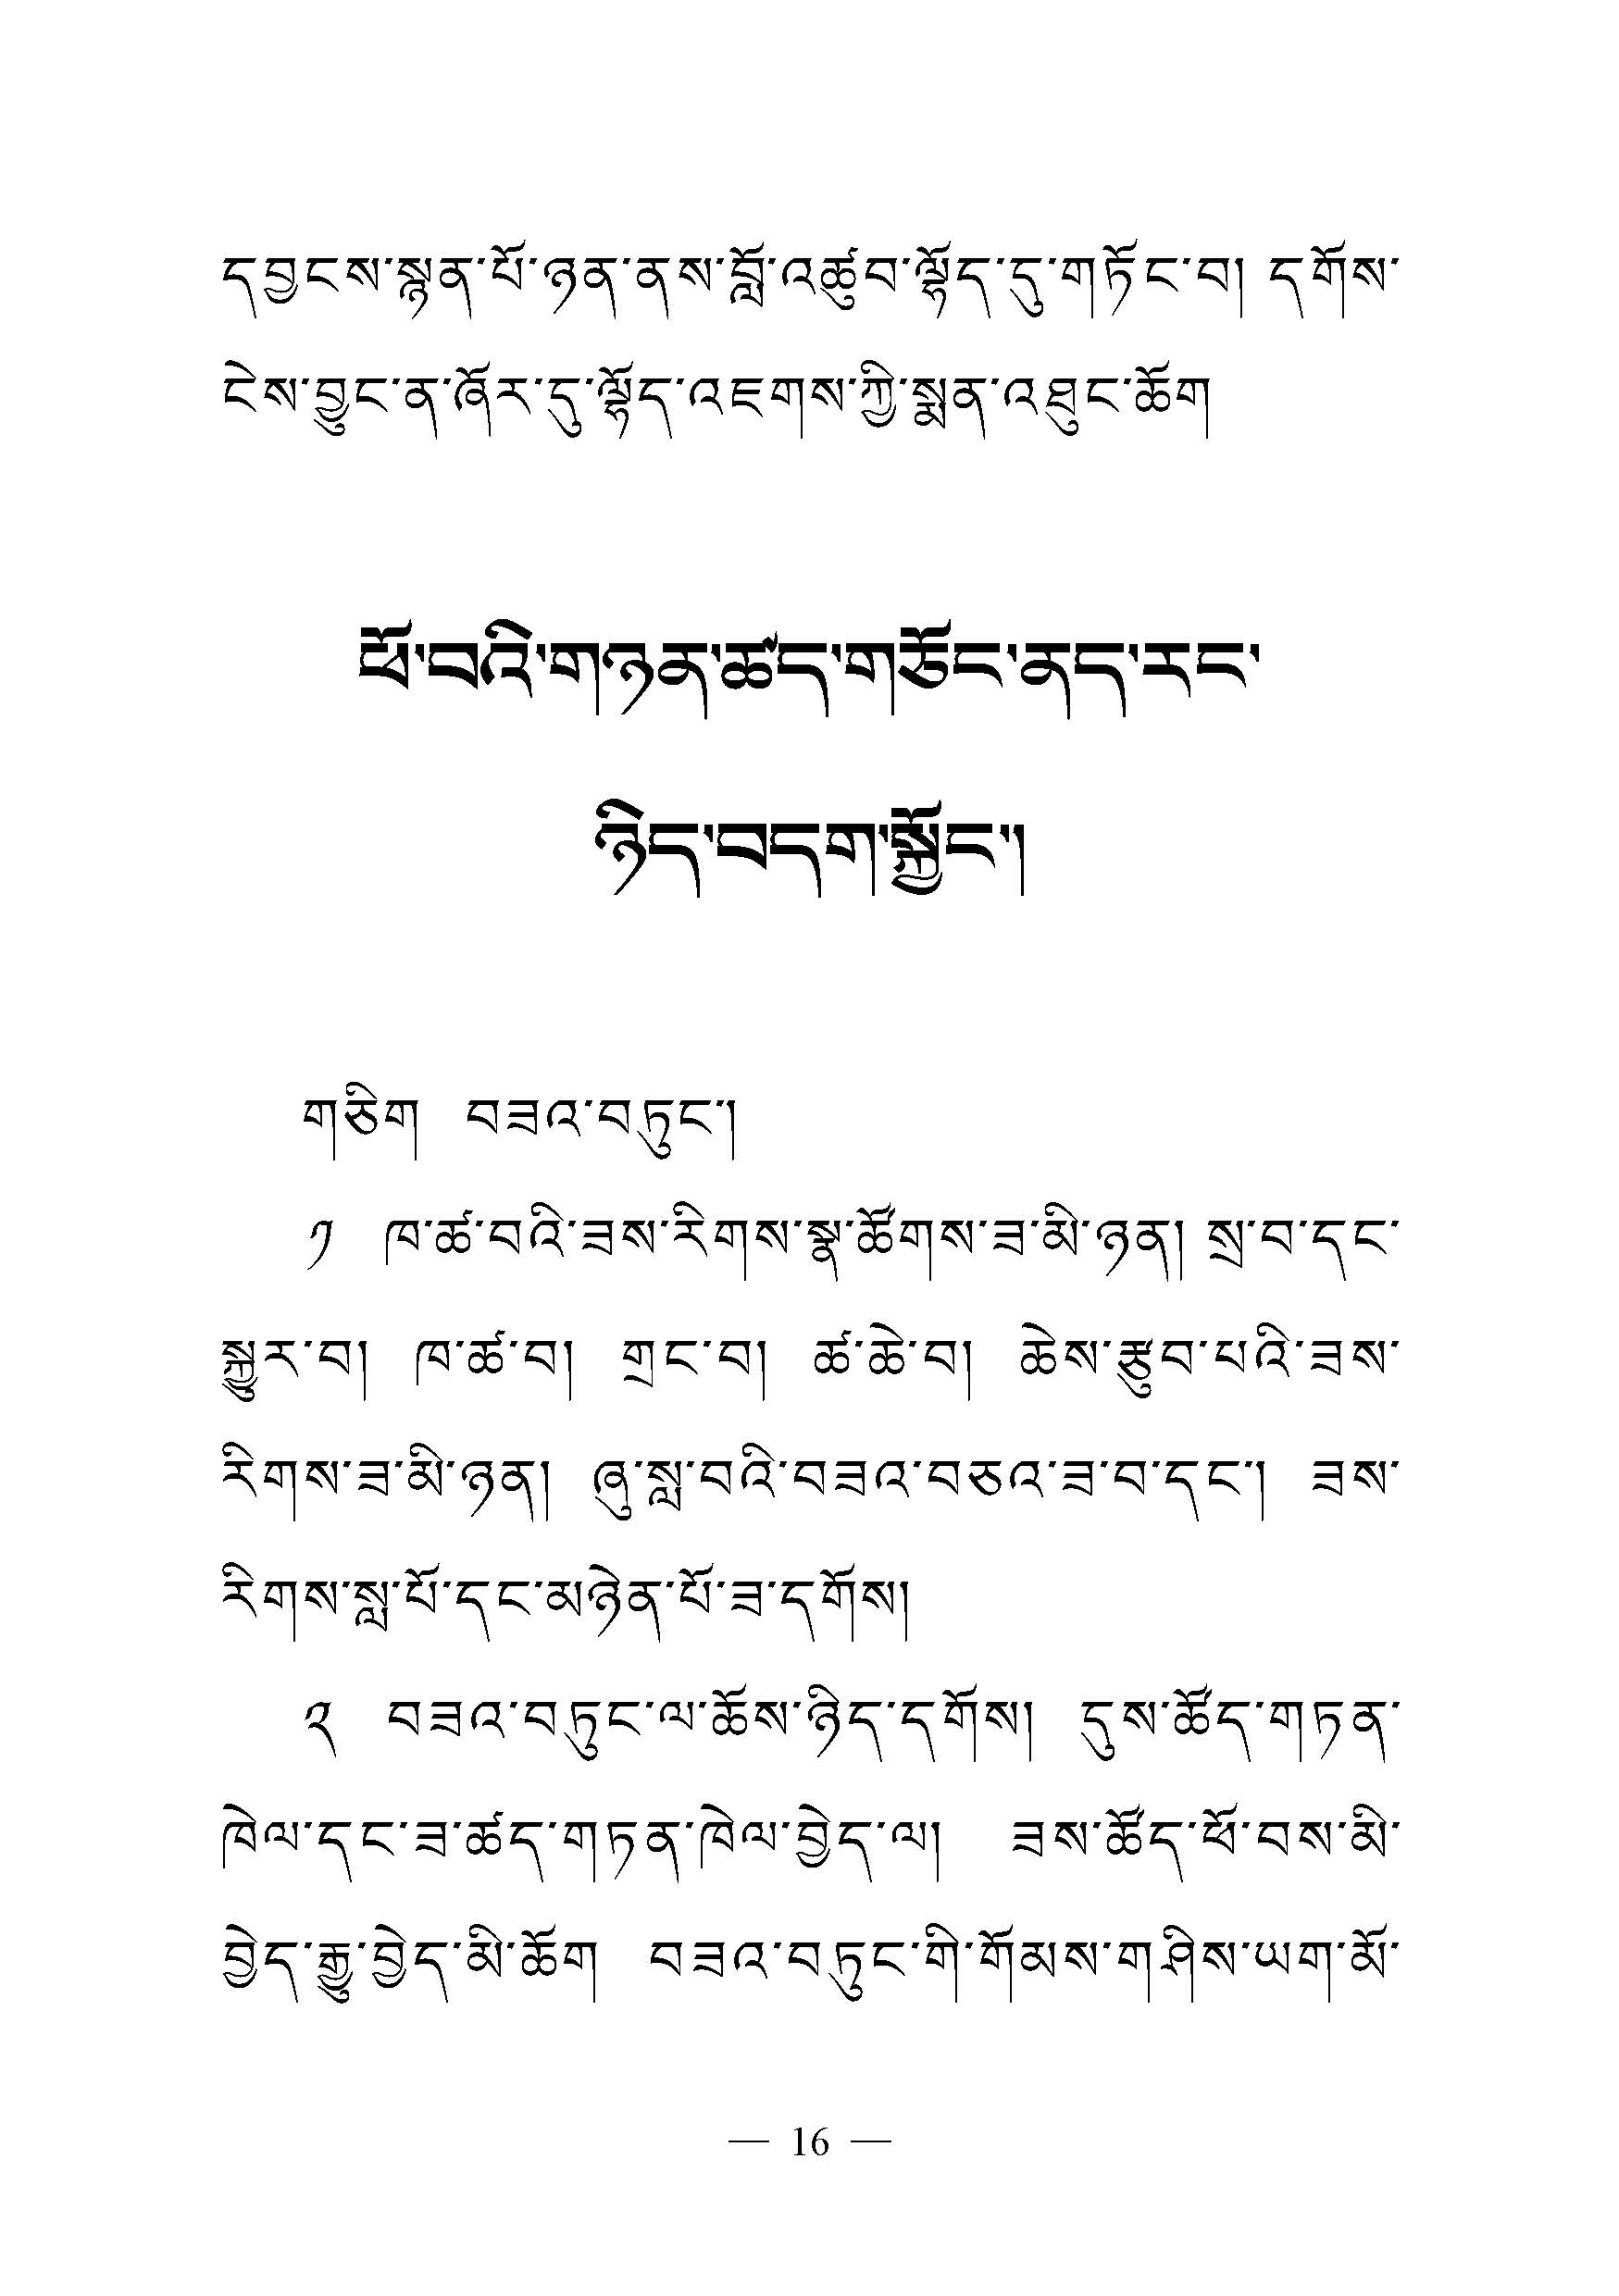 དབྱངས་སྙན་པོ་ཉན་ནས་བློ་འཚུབ་ལྷོད་དུ་གཏོང་བ། དགོས་
ངེས་བྱུང་ན་ཞོར་དུ་ལྷོད་འཇགས་ཀྱི་སྨན་འཐུང་ཆོག
ཕོ་བའི་གཉན་ཚད་གཅོང་ནད་རང་
ཉིད་བདག་སྐྱོང་།
གཅིག བཟའ་བཏུང་།
༡ ཁ་ཚ་བའི་ཟས་རིགས་སྣ་ཚོགས་ཟ་མི་ཉན། སྲ་བ་དང་
སྐྱུར་བ། ཁ་ཚ་བ། གྲང་བ། ཚ་ཆེ་བ། ཆེས་རྩུབ་པའི་ཟས་
རིགས་ཟ་མི་ཉན། ཞུ་སླ་བའི་བཟའ་བཅའ་ཟ་བ་དང་། ཟས་
རིགས་སླ་པོ་དང་མཉེན་པོ་ཟ་དགོས།
༢ བཟའ་བཏུང་ལ་ཆོས་ཉིད་དགོས། དུས་ཚོད་གཏན་
ཁེལ་དང་ཟ་ཚད་གཏན་ཁེལ་བྱེད་ལ། ཟས་ཚོད་ཕོ་བས་མི་
བྱེད་རྒྱུ་བྱེད་མི་ཆོག བཟའ་བཏུང་གི་གོམས་གཤིས་ཡག་མོ་
— 16 —